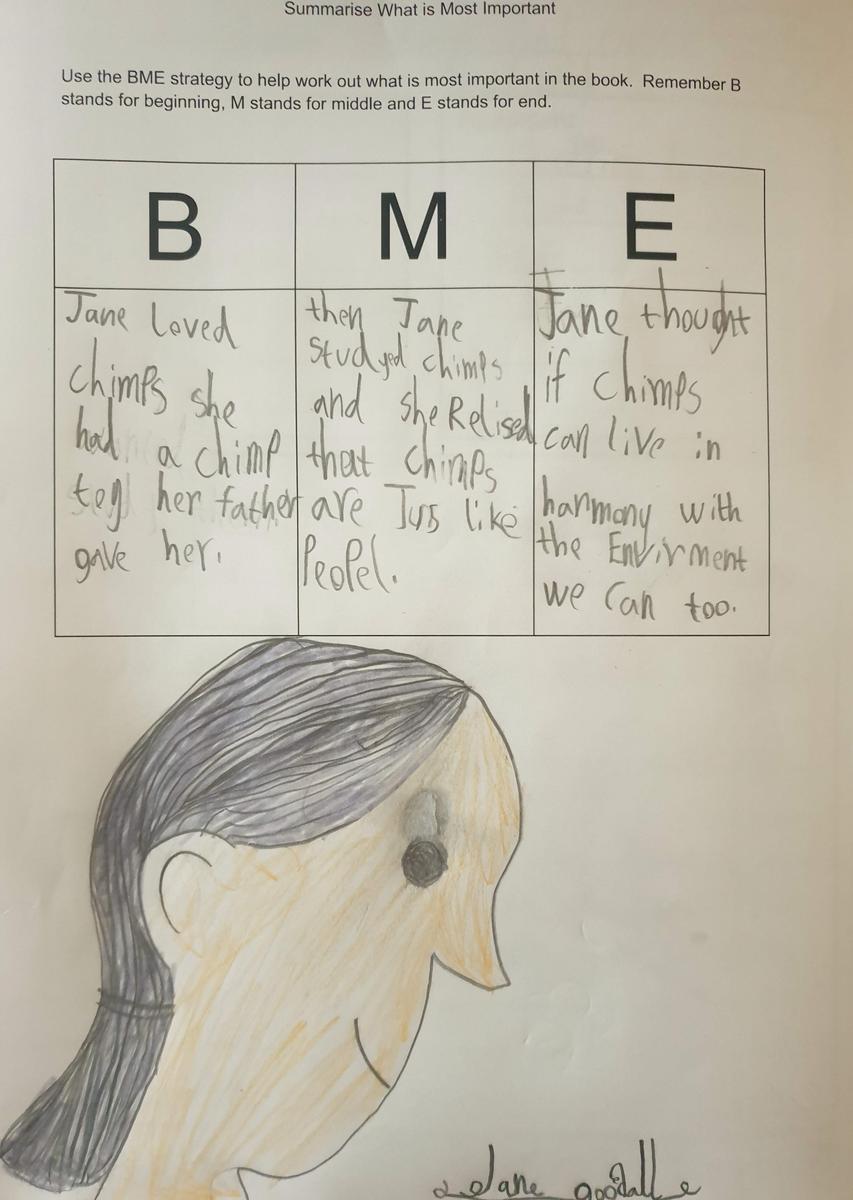 Summarise What is Most Important
Use the BME strategy to help work out what is most important in the book. Remember B
stands for beginning, M stands for middle and E stands for end.
B
Jane loved
chimps she
had a chimp
teg her father
gave her.
M
then Jane
studyed chimps
and she Relised
that chimps
are Jus like
PeoPel.
E
Jane thought
if chimps
can live in
harmony with
the Envirment
we can too.
Jane goodall